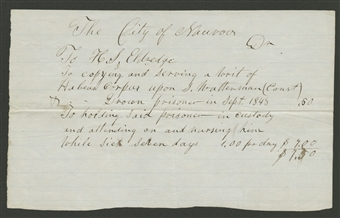 The City of Nauvoo
Dr
To H. S. Eldredge
To copying and serving a writ of
Habeas Corpus upon S. Watterman (Court)
Brown prisoner in Sept. 1843 .50
To holding said prisoner in custody
and attending on and nursing him
While sick seven days 1.00 per day $ 7.00
$ 7.50